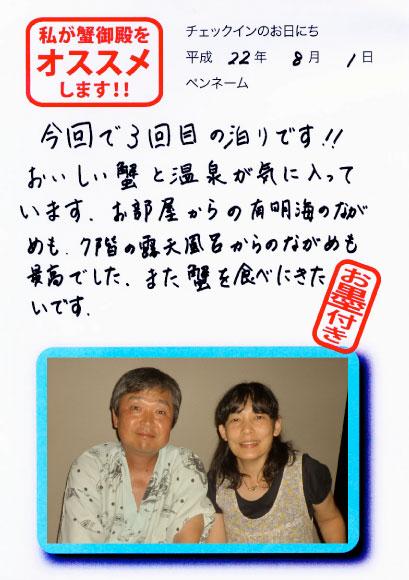 私が蟹御殿を
オススメ
します!!
チェックインのお日にち
平成 22年 8月 1日
ペンネーム
今回で3回目の泊りです!!
おいしい蟹と温泉が気に入って
います、お部屋からの有明海のなが
めも、7階の露天風呂からのながめも
最高でした、また蟹を食べにきた
いです.
お墨付き